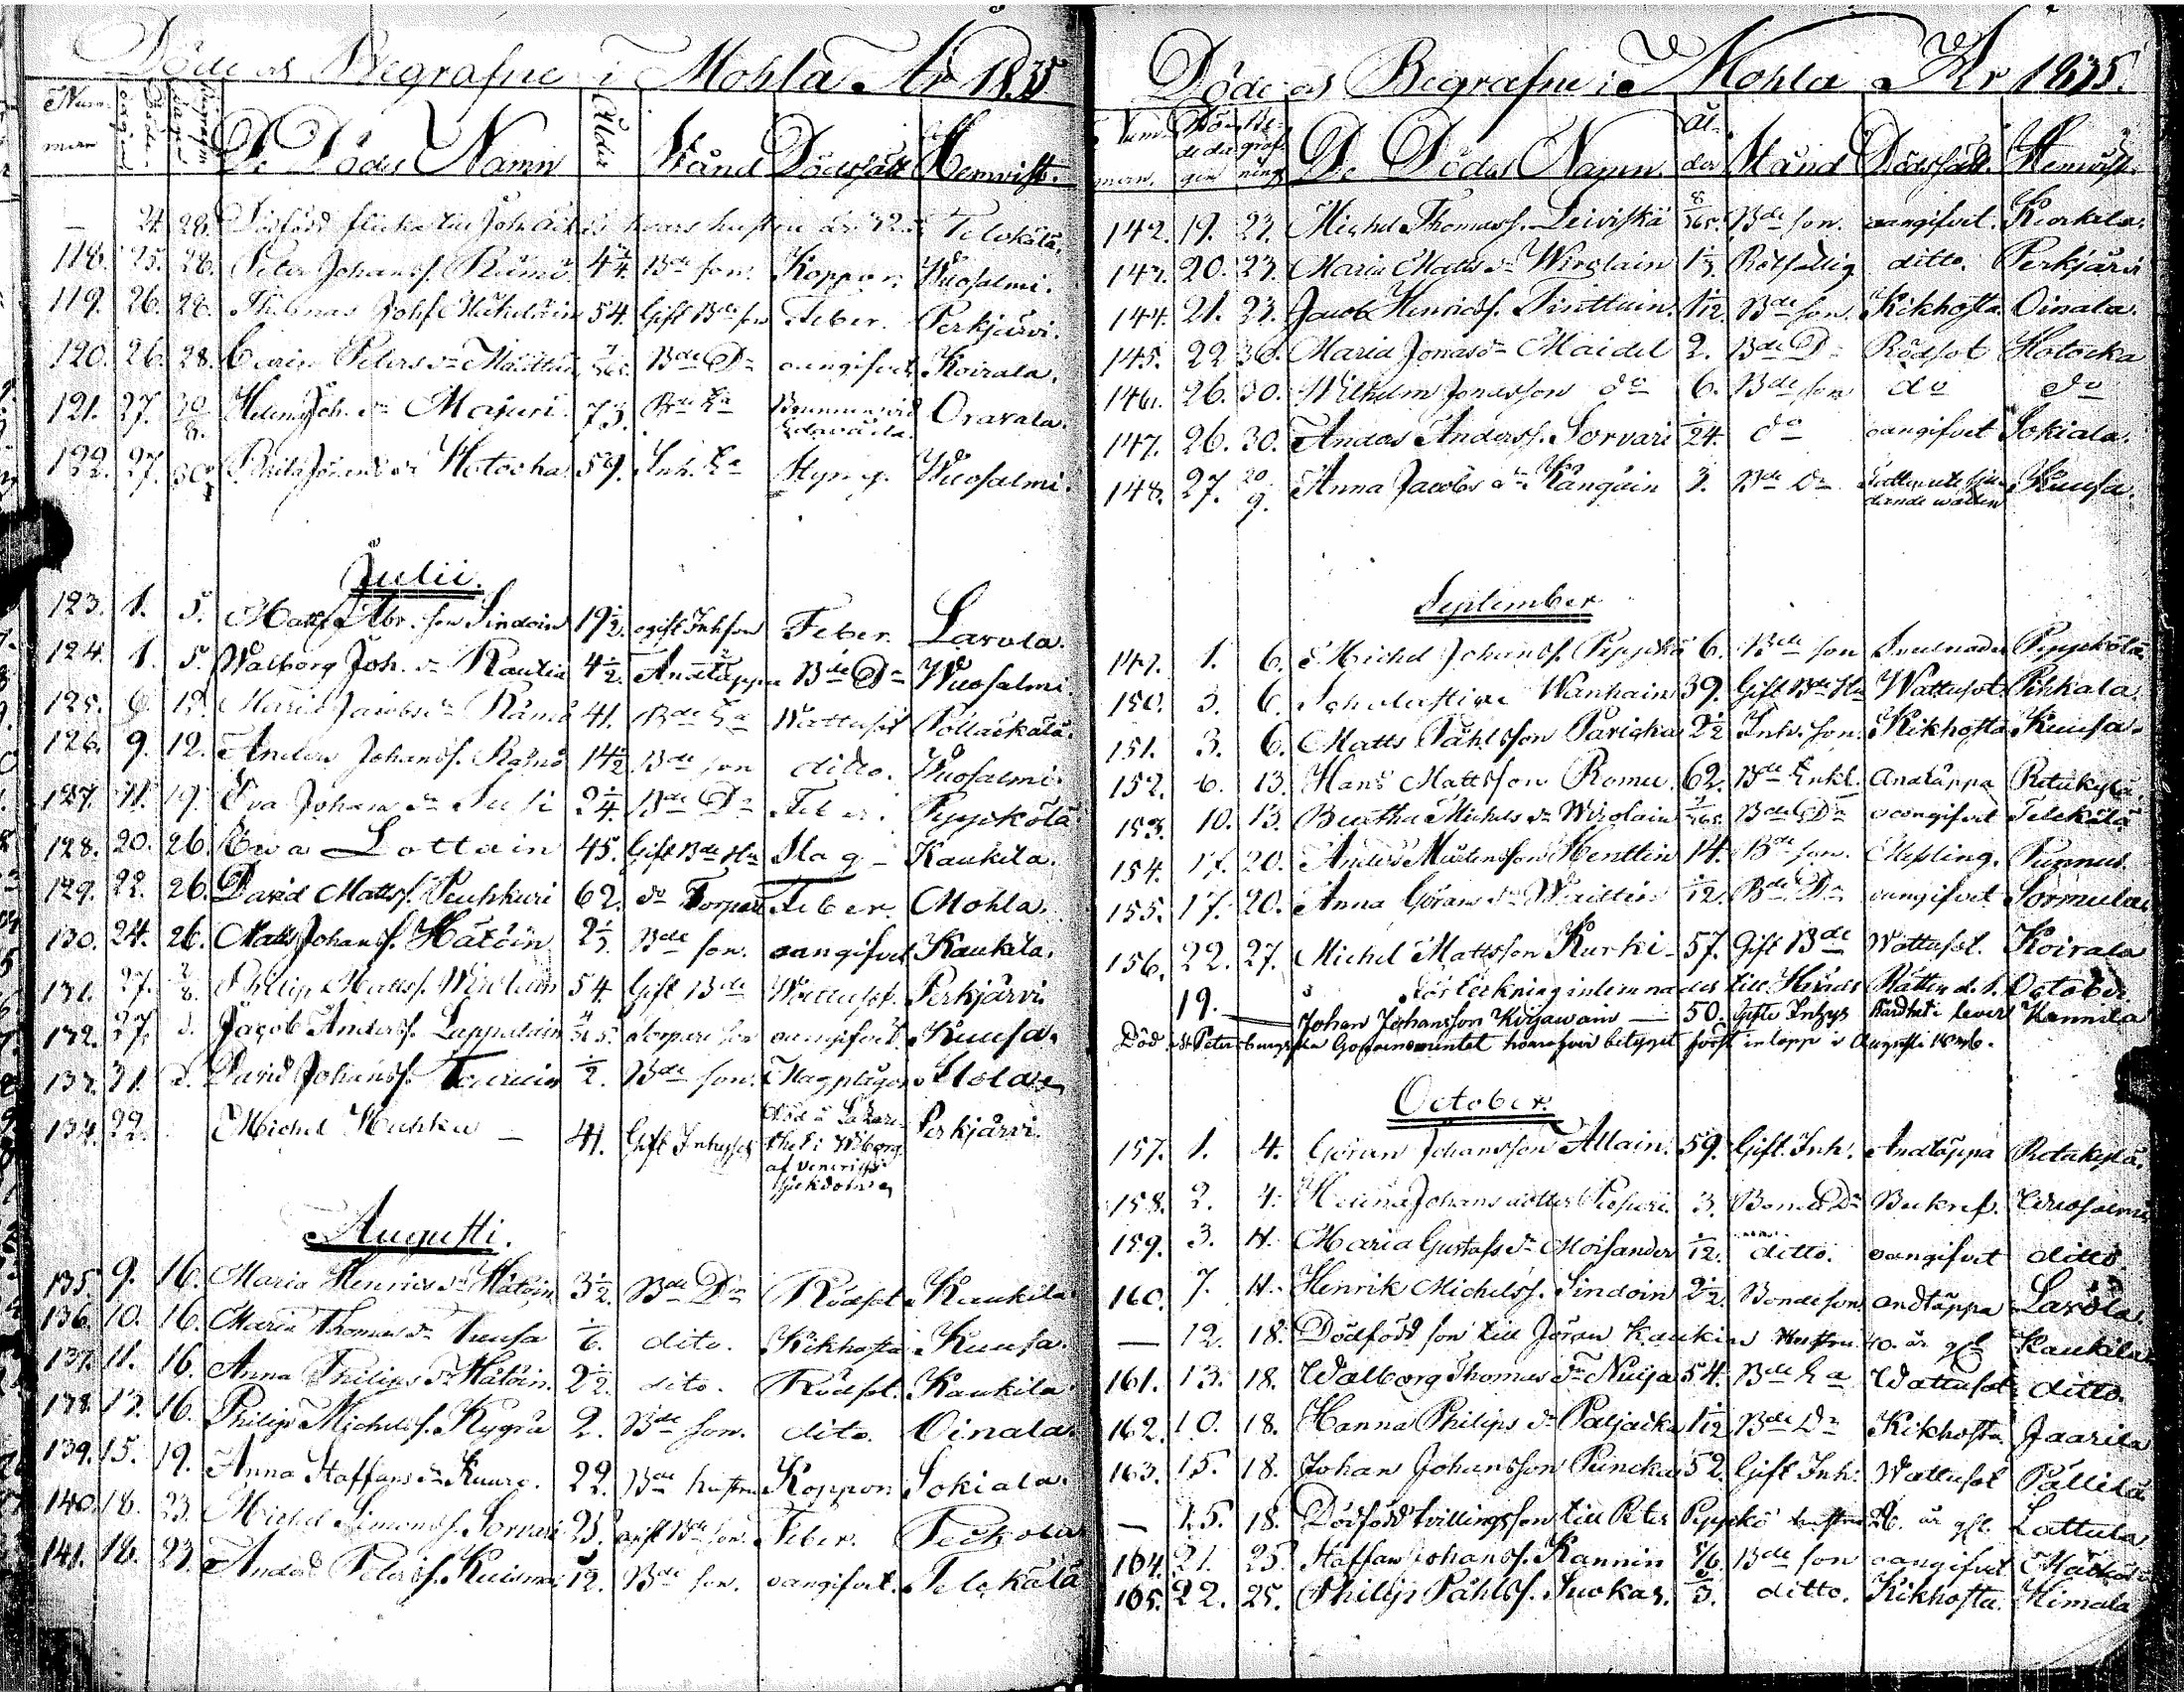 Döde och Begrafne i Mohla År 1835
Num-
mern
De Dödas Namn Ålder Stånd Dödssätt Hemvist.
— 24. 28. Dödfödd flicka till Joh. hustru är 32 Telokälä.
118. 25. 28. Peter Johanss. Rämö 4 1/4. Bde son. Koppor. Wuosalmi.
119. 26. 28. Thomas Johs. 54. Gift Bde son Feber. Perkjärvi.
120. 26. 28. Carin Peters dr 7/365. Bde Dr oangifvet. Koirala.
121. 27. 30/8. Helena Joh. dr Majuri. 73. Bde Ea Oravala.
122. 27. 30. Brita dr Hotocka 59. Inh. Ea Styng. Wuosalmi.
Julii.
123. 1. 5. Matts Abr. son Sindoin 19 1/2. ogift Inh son Feber. Larola.
124. 1. 5. Walborg Joh. dr Rautia 4 1/2. Andtäppa Bde Dr Wuosalmi.
125. 6. 12. Maria Jacobs dr Rämö 41. Bde Ea Wattusot Pöllackälä.
126. 9. 12. Anders Johanss. Rämö 14 1/2 Bde son ditto. Wuosalmi.
127. 11. 19. Eva Johans dr Susi 3/4. Bde Dr Feber. Pyyckölä.
128. 20. 26. Ewa Lottain 45. Gift Bde Hu Slag - Kaukila.
129. 22. 26. David Matts. Peuhkuri 62. do Torpare Feber. Mohla.
130. 24. 26. Matts Johanss. Hätöin 2/3. Bde son. oangifvet Kaukila.
131. 27. 2/8. Philip Matts. Wirolain 54. Gift Bde Wattusot. Perkjärvi.
132. 27. 2. Jacob Anderss. Lappalain torpare son oangifvet. Kuusa.
133. 31. 2. David Johanss. 1/2. Bde son. Magplågor.
134. 22. Michel Huhka — 41. Gift Inhyses Död å Lazare-
thet i Wiborg Perkjärvi.
af Venerisk
sjukdomen
Augusti.
135. 9. 16. Maria Henrics dr Hätöin 3 1/2. Bde Dr Rödsot Kaukila.
136. 10. 16. Maria Thomas dr Tuusa 1/6. dito. Kikhosta Kuusa.
137. 11. 16. Anna Philips dr Hätöin. 2 1/2. dito. Rödsot. Kaukila.
138. 12. 16. Philip Michelss. Kygrä 2. Bde son. dito. Oinala.
139. 15. 19. Anna Staffans dr Kuure. 22. Bde hustru Koppor Sokiala.
140. 18. 23. Michel Simonss. Sorvari 23. ogift Bde son. Feber.
141. 18. 23. Anders Peterss. Kuisma 5/12. Bde son. oangifvet. Telokälä
Döde och Begrafne i Mohla År 1835.
Num-
mern. Dö-
de da-
gen Be-
graf-
ning De Dödas Namn. Ål-
der Stånd Dödssätt. Hemvist.
142. 19. 23. Michel Thomass. Leiviskä 8/365. Bde son. oangifvet. Kiorkala.
143. 20. 23. Maria Matts dr Wirolain 1/3. Rotfattig ditto. Perkjärvi
144. 21. 23. Jacob Henricss. Tinttain. 1/12. Bde son. Kikhosta Oinala.
145. 22 30. Maria Jonas dr Maidel 2. Bde Dr Rödsot Hotocka
146. 26. 30. Wilhelm Jonasson do 6. Bde son do do
147. 26. 30. Anders Anderss. Sorvari 1/24. do oangifvet Sokiala.
148. 27. 20/9. Anna Jacobs dr Kangain 3. Bde Dr Kuusa.
September
149. 1. 6. Michel Johanss. Pyyckö 6. Bde son Pyyckölä
150. 3. 6. Scholastica Wanhain 39. Gift Bde Hu Wattusot Pihkala.
151. 3. 6. Matts Påhlsson Paricka 2 1/2 Inh. son. Kikhosta Kuusa.
152. 6. 13. Hans Mattsson Romu. 62. Bde Enkl. Andtäppa Rotakylä
153. 10. 13. Beatha Michels dr Wirolain Bde Dr oangifvet Telokälä
154. 17. 20. Anders Henttin 14. Bde son. Punnus.
155. 17. 20. Anna Görans dr 1/12. Bde Dr oangifvet Sormula
156. 22. 27. Michel Mattsson Kurki - 57. Gift Bde Wattusot. Koirala
Förteckning inlemnades till Härads Rätten d. 1. October
19. — Johan Johansson Kirjawain — 50. Gifte Inhys Hårdhet i lever Kannila
Död i St. Petersburgska Gouvernementet hvarifrån betyget först inlopp i Augusti 1836.
October.
157. 1. 4. Göran Johansson Allain. 59. Gift. Inh. Andtäppa Rotakylä.
158. 2. 4. Helena Johans dotter Piepuri. 3. Bonde Dr Bukref. Wuosalmi
159. 3. 11. Maria Gustafs dr Moisander 1/12. ditto. oangifvet ditto.
160. 7. 11. Henrik Michelss. Sindoin 2 1/2. Bondeson andtäppa Larola.
— 12. 18. Dödfödd son till Jöran Kaukiain Hustru. 40. år gl Kaukila
161. 13. 18. Walborg Thomas dr Nuija 54. Bde Ea Wattusot ditto.
162. 10. 18. Hanna Philips dr Paljacka 1/12 Bde Dr Kikhosta Jaarila
163. 15. 18. Johan Johansson Puncka 52. Gift Inh. Wattusot Pällilä
— 15. 18. Dödfödd tvillingsson till Peter Pyykö hustru 26. år gl. Lattula
164. 21. 25. Staffan Johanss. Kannin 5/6. Bde son oangifvet
165. 22. 25. Philip Påhlss. Suokas. 2/3. ditto. Kikhosta. Himala